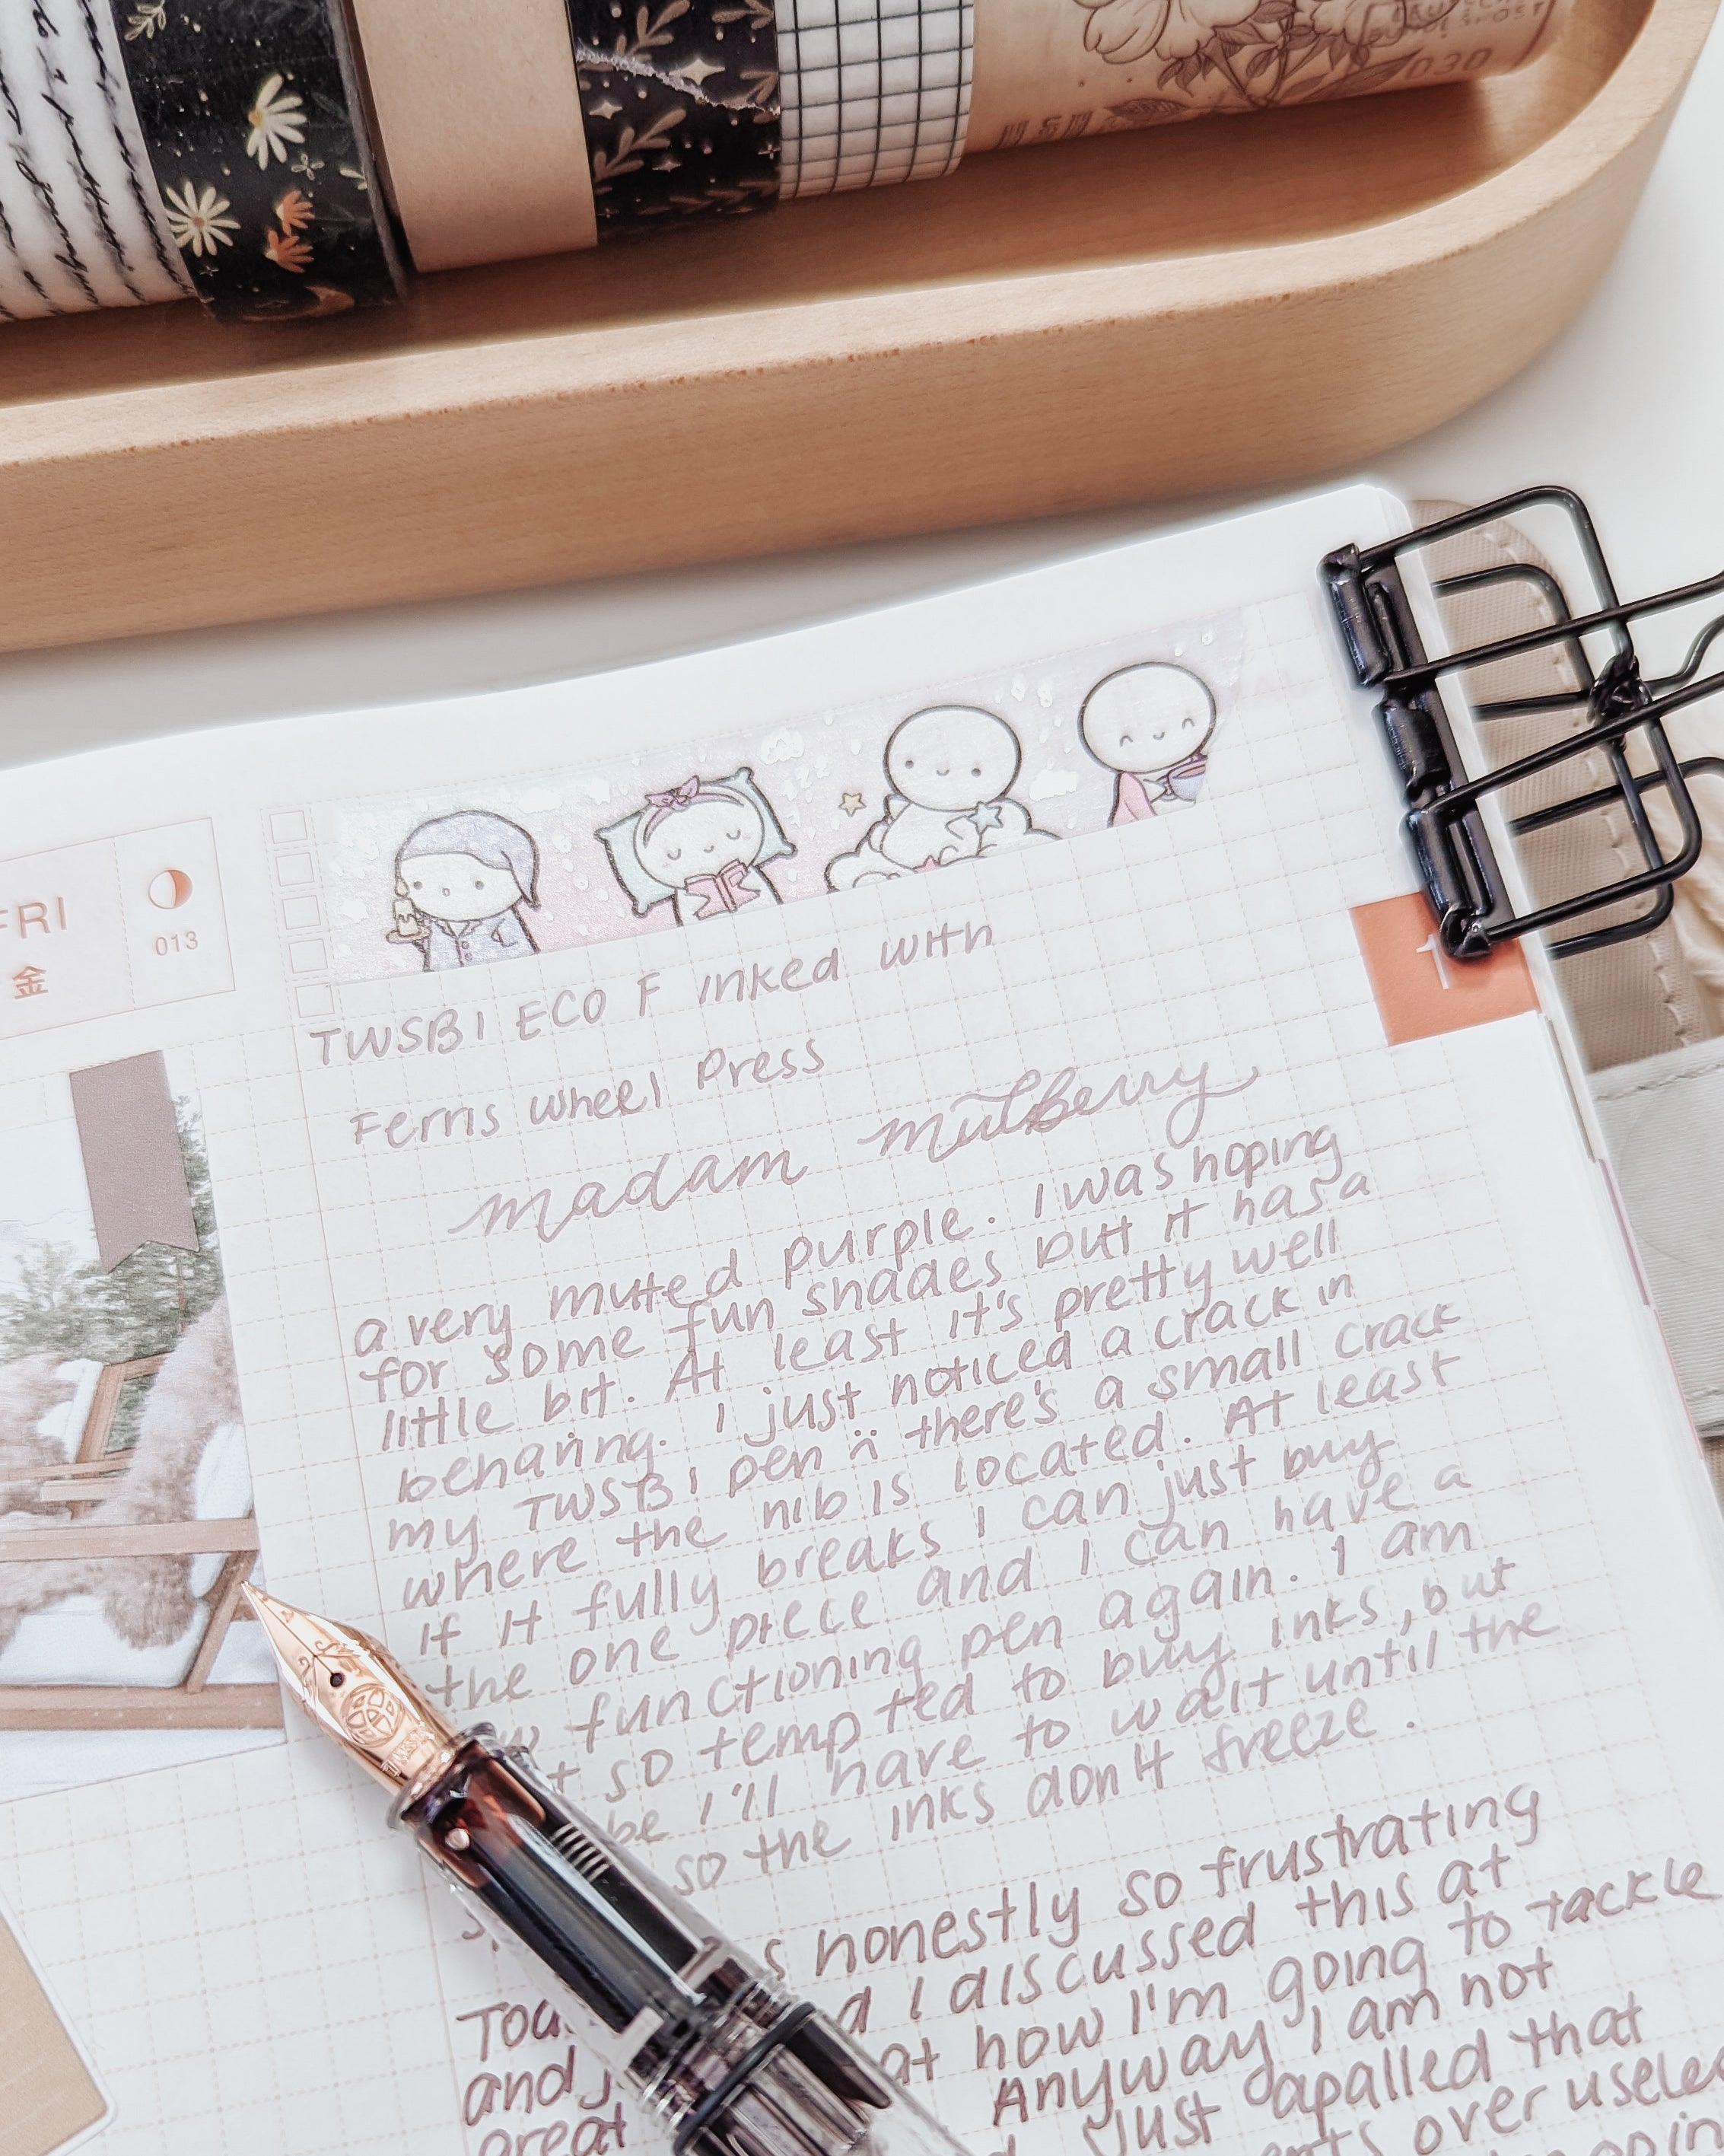 030
FRI
金
013
1
TWSBI ECO F inked with
Ferris Wheel Press
madam mulberry
a very muted purple. I was hoping
for some fun shades but it has a
little bit. At least it's pretty well
behaving. I just noticed a crack in
my TWSBI pen :( there's a small crack
where the nib is located. At least
if it fully breaks I can just buy
the one piece and I can have a
functioning pen again. I am
so tempted to buy inks, but
I'll have to wait until the
so the inks don't freeze.
honestly so frustrating
I discussed this at
how I'm going to tackle
and
great
Anyway I am not
just apalled that
over